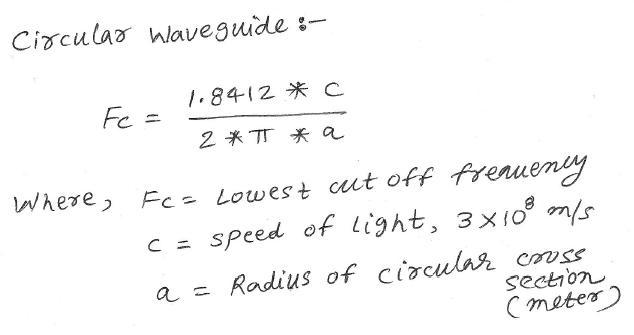 Circular Waveguide :-
Fc = 1.8412 * c
2 * π * a
Where, Fc = Lowest cut off frequency
c = speed of light, 3×10⁸ m/s
a = Radius of circular cross
section
(meter)